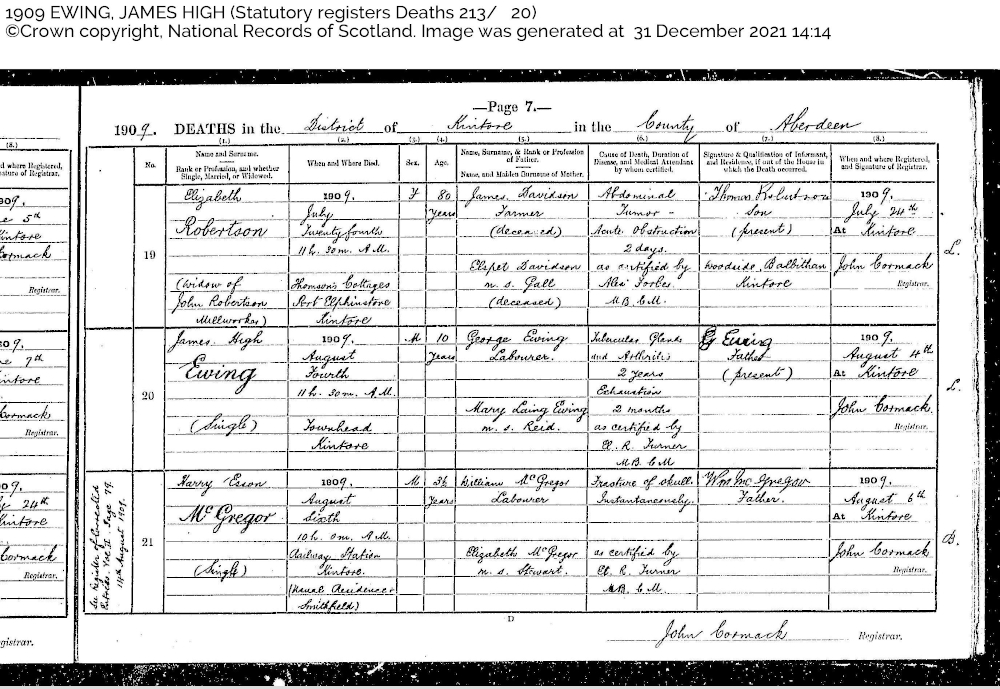 1909 EWING, JAMES HIGH (Statutory registers Deaths 213/ 20)
©Crown copyright, National Records of Scotland. Image was generated at 31 December 2021 14:14
—Page 7.—
1909. DEATHS in the District of Kintore in the County of Aberdeen
(1.) (2.) (3.) (4.) (5.) (6.) (7.) (8.)
No.
Name and Surname.
Rank or Profession, and whether
Single, Married, or Widowed.
When and Where Died.
Sex.
Age.
Name, Surname, & Rank or Profession
of Father.
Name, and Maiden Surname of Mother.
Cause of Death, Duration of
Disease, and Medical Attendant
by whom certified.
Signature & Qualification of Informant,
and Residence, if out of the House in
which the Death occurred.
When and where Registered,
and Signature of Registrar.
19
Elizabeth
Robertson
(Widow of
John Robertson
Millworker)
1909.
July
Twenty fourth
11 h. 30 m. A.M.
Thomson's Cottages
Port Elphinstone
Kintore
F
80
Years
James Davidson
Farmer
(deceased)
Elspet Davidson
m. s. Gall
(deceased)
Abdominal
Tumor -
Acute Obstruction
2 days.
as certified by
Alexr Forbes
M.B. C.M.
Thomas Robertson
Son
(present)
Woodside, Balbithan
Kintore
1909
July 24th
At Kintore
John Cormack
Registrar.
L.
20
James High
Ewing
(Single)
1909.
August
Fourth
11 h. 30 m. A.M.
Townhead
Kintore
M
10
Years
George Ewing
Labourer.
Mary Laing Ewing
m. s. Reid.
Tubercular Glands
and Arthritis
2 years
Exhaustion
2 months
as certified by
R. Turner
M.B. C.M.
G Ewing
Father
(present)
1909.
August 4th
At Kintore
John Cormack.
Registrar.
L.
21
Harry Esson
McGregor
(Single)
1909.
August
Sixth
10 h. 0 m. A.M.
Railway Station
Kintore.
(Usual Residence
Smithfield)
M
36
Years
William McGregor
Labourer
Elizabeth McGregor
m. s. Stewart.
Fracture of skull.
Instantaneously.
as certified by
R. Turner
M.B. C.M.
Wm McGregor
Father.
1909.
August 6th
At Kintore
John Cormack
Registrar.
B.
See Register of Corrected
Entries. Vol. II Page 79.
14th August 1909.
D
John Cormack Registrar.
(8.)
909.
5th
Kintore
Cormack
Registrar.
7th
Kintore
Cormack
Registrar.
24th
Kintore
Cormack
Registrar.
gistrar.